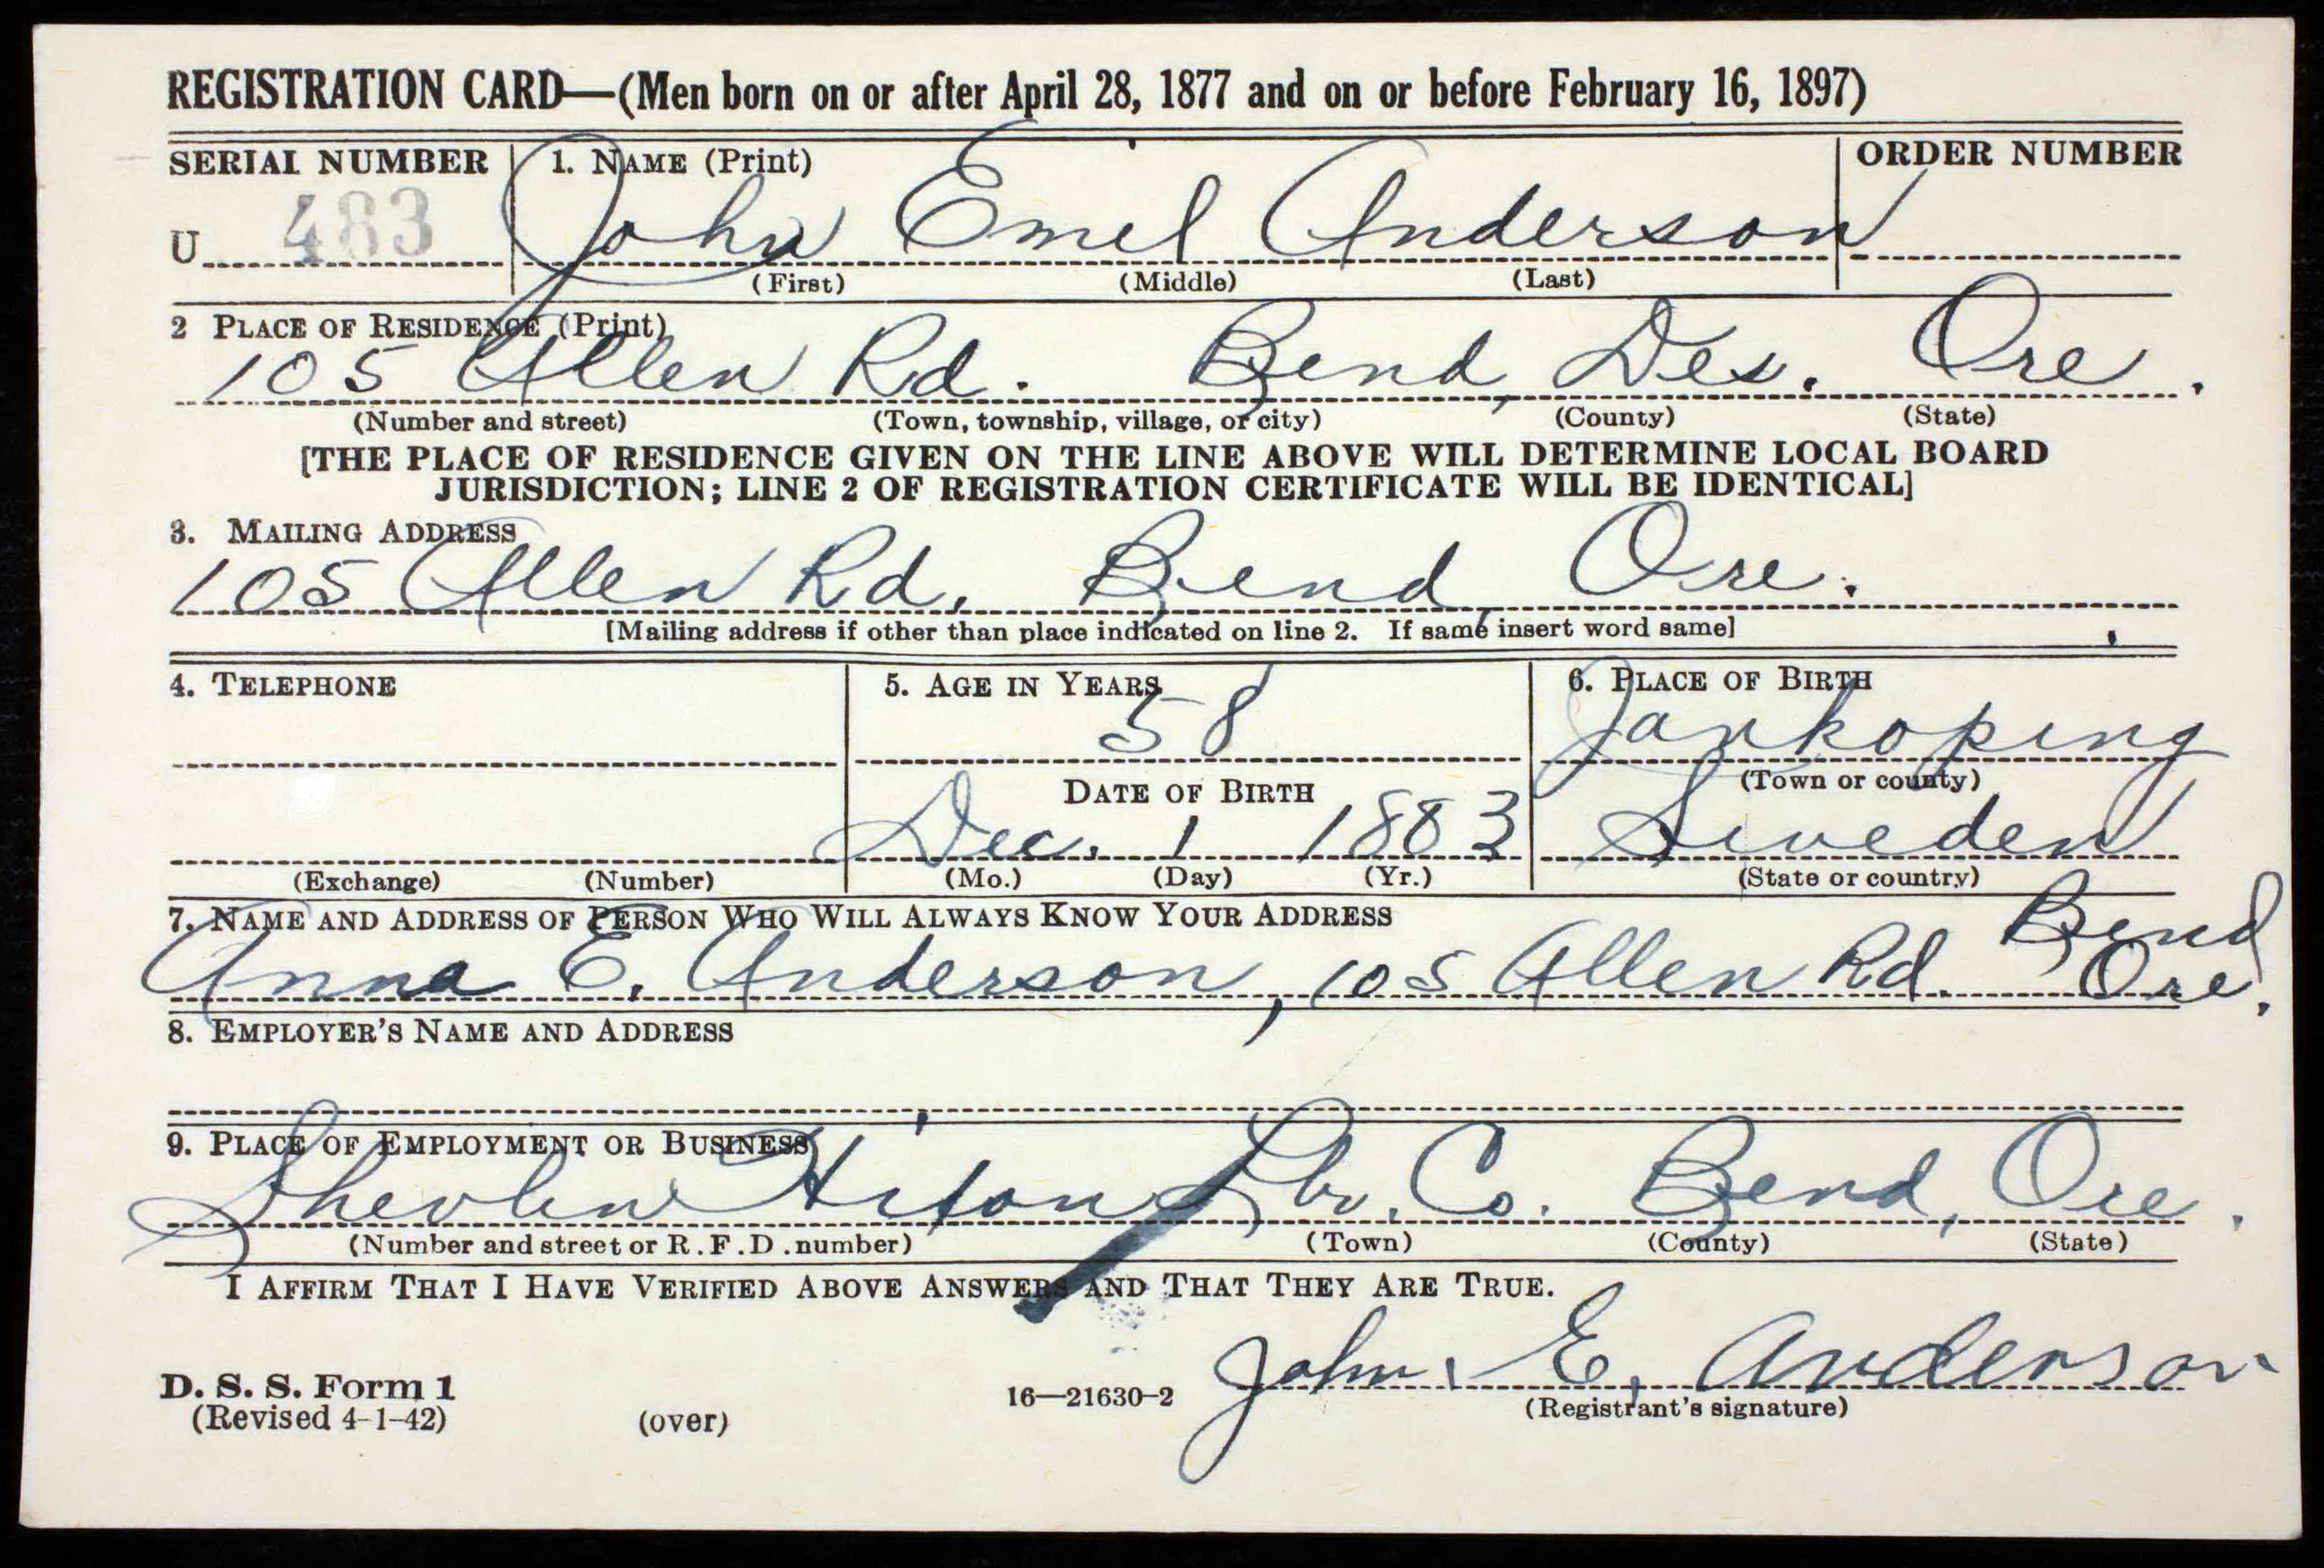 REGISTRATION CARD—(Men born on or after April 28, 1877 and on or before February 16, 1897)
SERIAL NUMBER 1. NAME (Print) ORDER NUMBER
U 483 John Emil Anderson
(First) (Middle) (Last)
2 PLACE OF RESIDENCE (Print)
105 Allen Rd. Bend, Des. Ore.
(Number and street) (Town, township, village, or city) (County) (State)
[THE PLACE OF RESIDENCE GIVEN ON THE LINE ABOVE WILL DETERMINE LOCAL BOARD
JURISDICTION; LINE 2 OF REGISTRATION CERTIFICATE WILL BE IDENTICAL]
3. MAILING ADDRESS
105 Allen Rd. Bend, Ore.
[Mailing address if other than place indicated on line 2. If same insert word same]
4. TELEPHONE 5. AGE IN YEARS 6. PLACE OF BIRTH
58 Jankoping
DATE OF BIRTH (Town or county)
Dec. 1 1883 Sweden
(Exchange) (Number) (Mo.) (Day) (Yr.) (State or country)
7. NAME AND ADDRESS OF PERSON WHO WILL ALWAYS KNOW YOUR ADDRESS
Anna E. Anderson, 105 Allen Rd. Bend Ore.
8. EMPLOYER'S NAME AND ADDRESS
9. PLACE OF EMPLOYMENT OR BUSINESS
Shevlin Hixon Lbr. Co. Bend, Ore.
(Number and street or R. F. D. number) (Town) (County) (State)
I AFFIRM THAT I HAVE VERIFIED ABOVE ANSWERS AND THAT THEY ARE TRUE.
John E. Anderson
D. S. S. Form 1 16—21630-2 (Registrant's signature)
(Revised 4-1-42) (over)